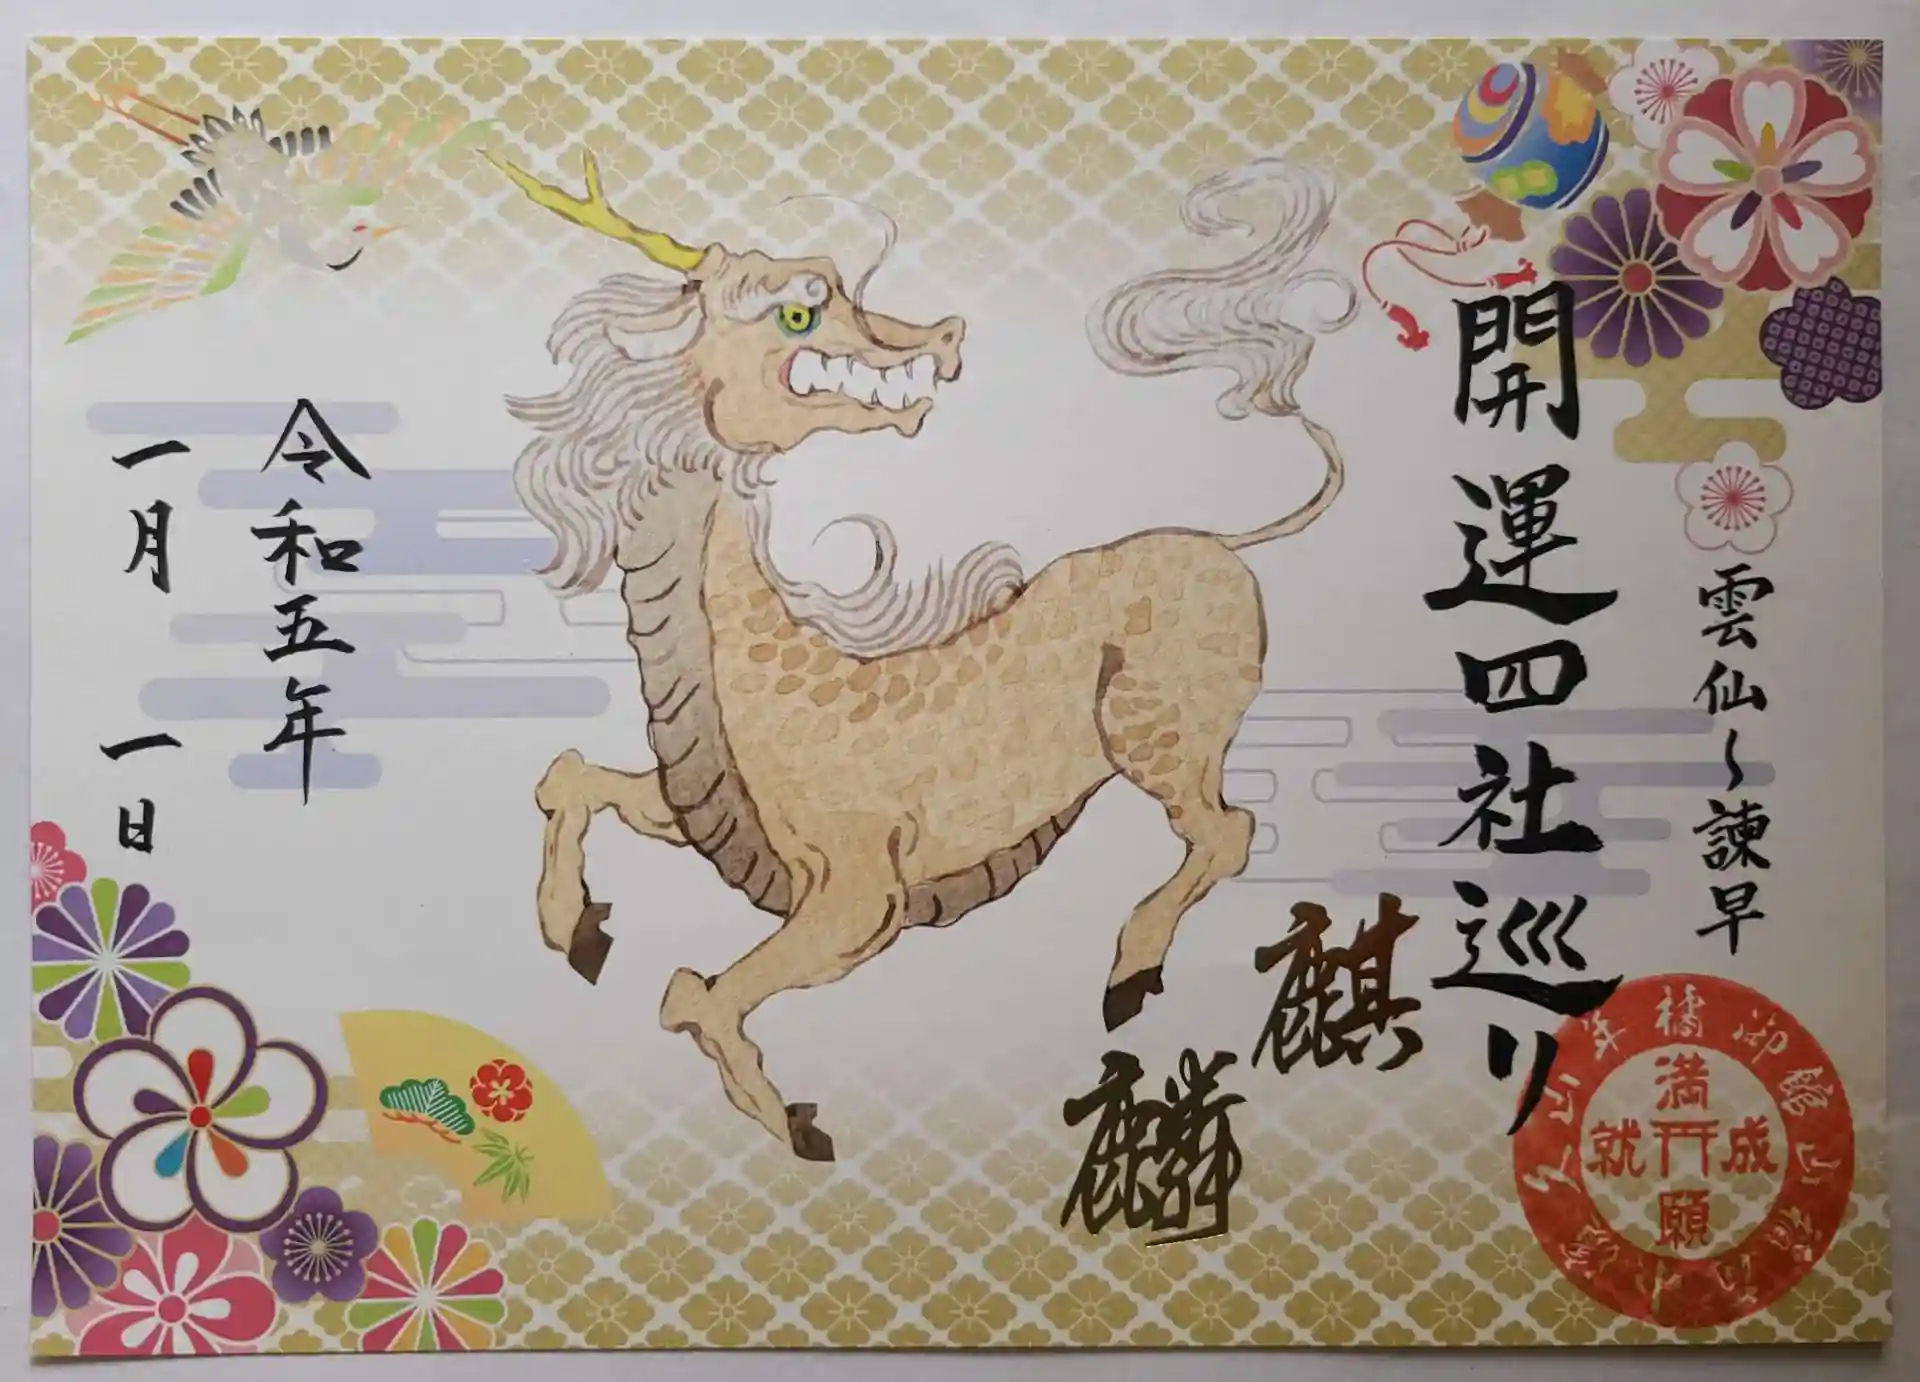 雲仙〜諫早
開運四社巡り
麒
麟
満
願
成
就
令和五年
一月一日